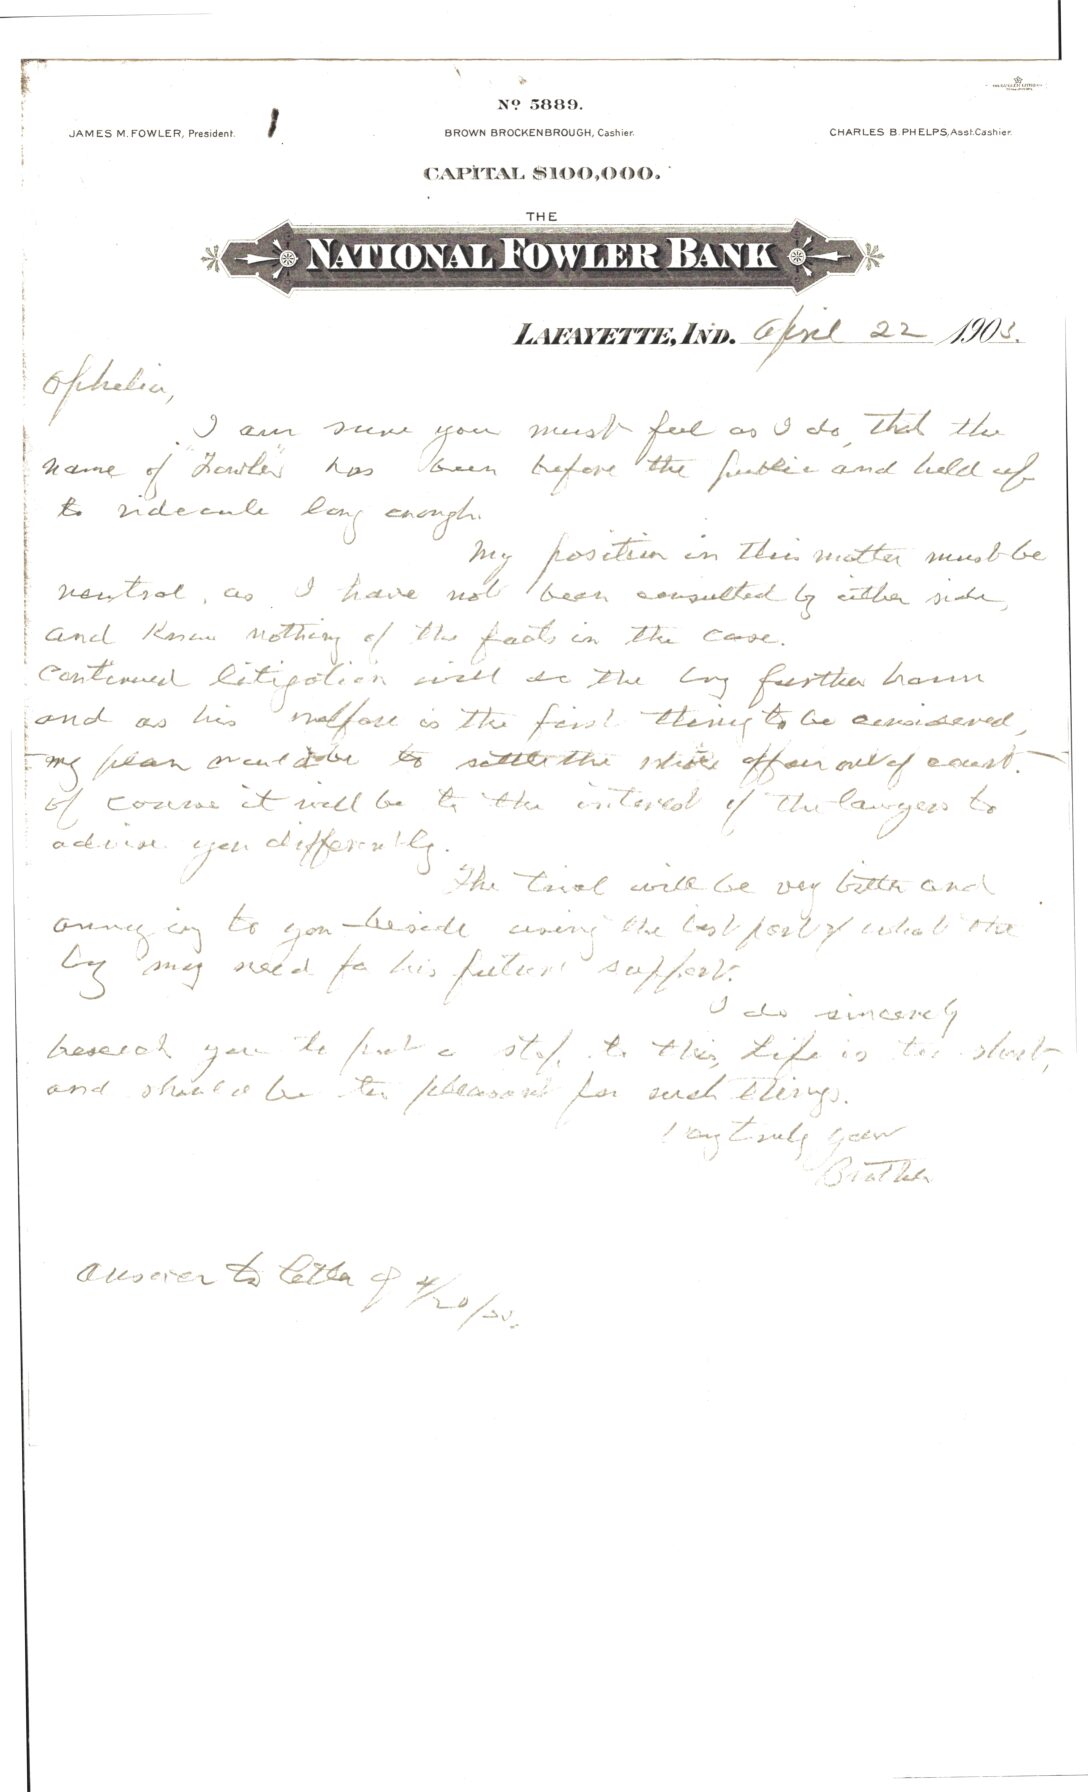 No 5889.
JAMES M. FOWLER, President.
BROWN BROCKENBROUGH, Cashier.
CHARLES B. PHELPS, Asst. Cashier.
CAPITAL $100,000.
THE
NATIONAL FOWLER BANK
LAFAYETTE, IND. April 22 1903.
Ophelia,
I am sure you must feel as I do, that the
name of "Fowler" has been before the public and held up
to ridecule long enough.
My position in this matter must be
neutral, as I have not been consulted by either side,
and know nothing of the facts in the case.
Continued litigation will do the boy further harm
and as his welfare is the first thing to be considered,
my plan would be to settle the whole affair out of court.
Of course it will be to the interest of the lawyers to
advise you differently.
The trial will be very bitter and
annoying to you - beside using the best part of what the
boy may need for his future support.
I do sincerely
beseech you to put a stop to this, Life is too short,
and should be too pleasant for such things.
Very truly yours
Brother
Answer to letter of 4/20/03.